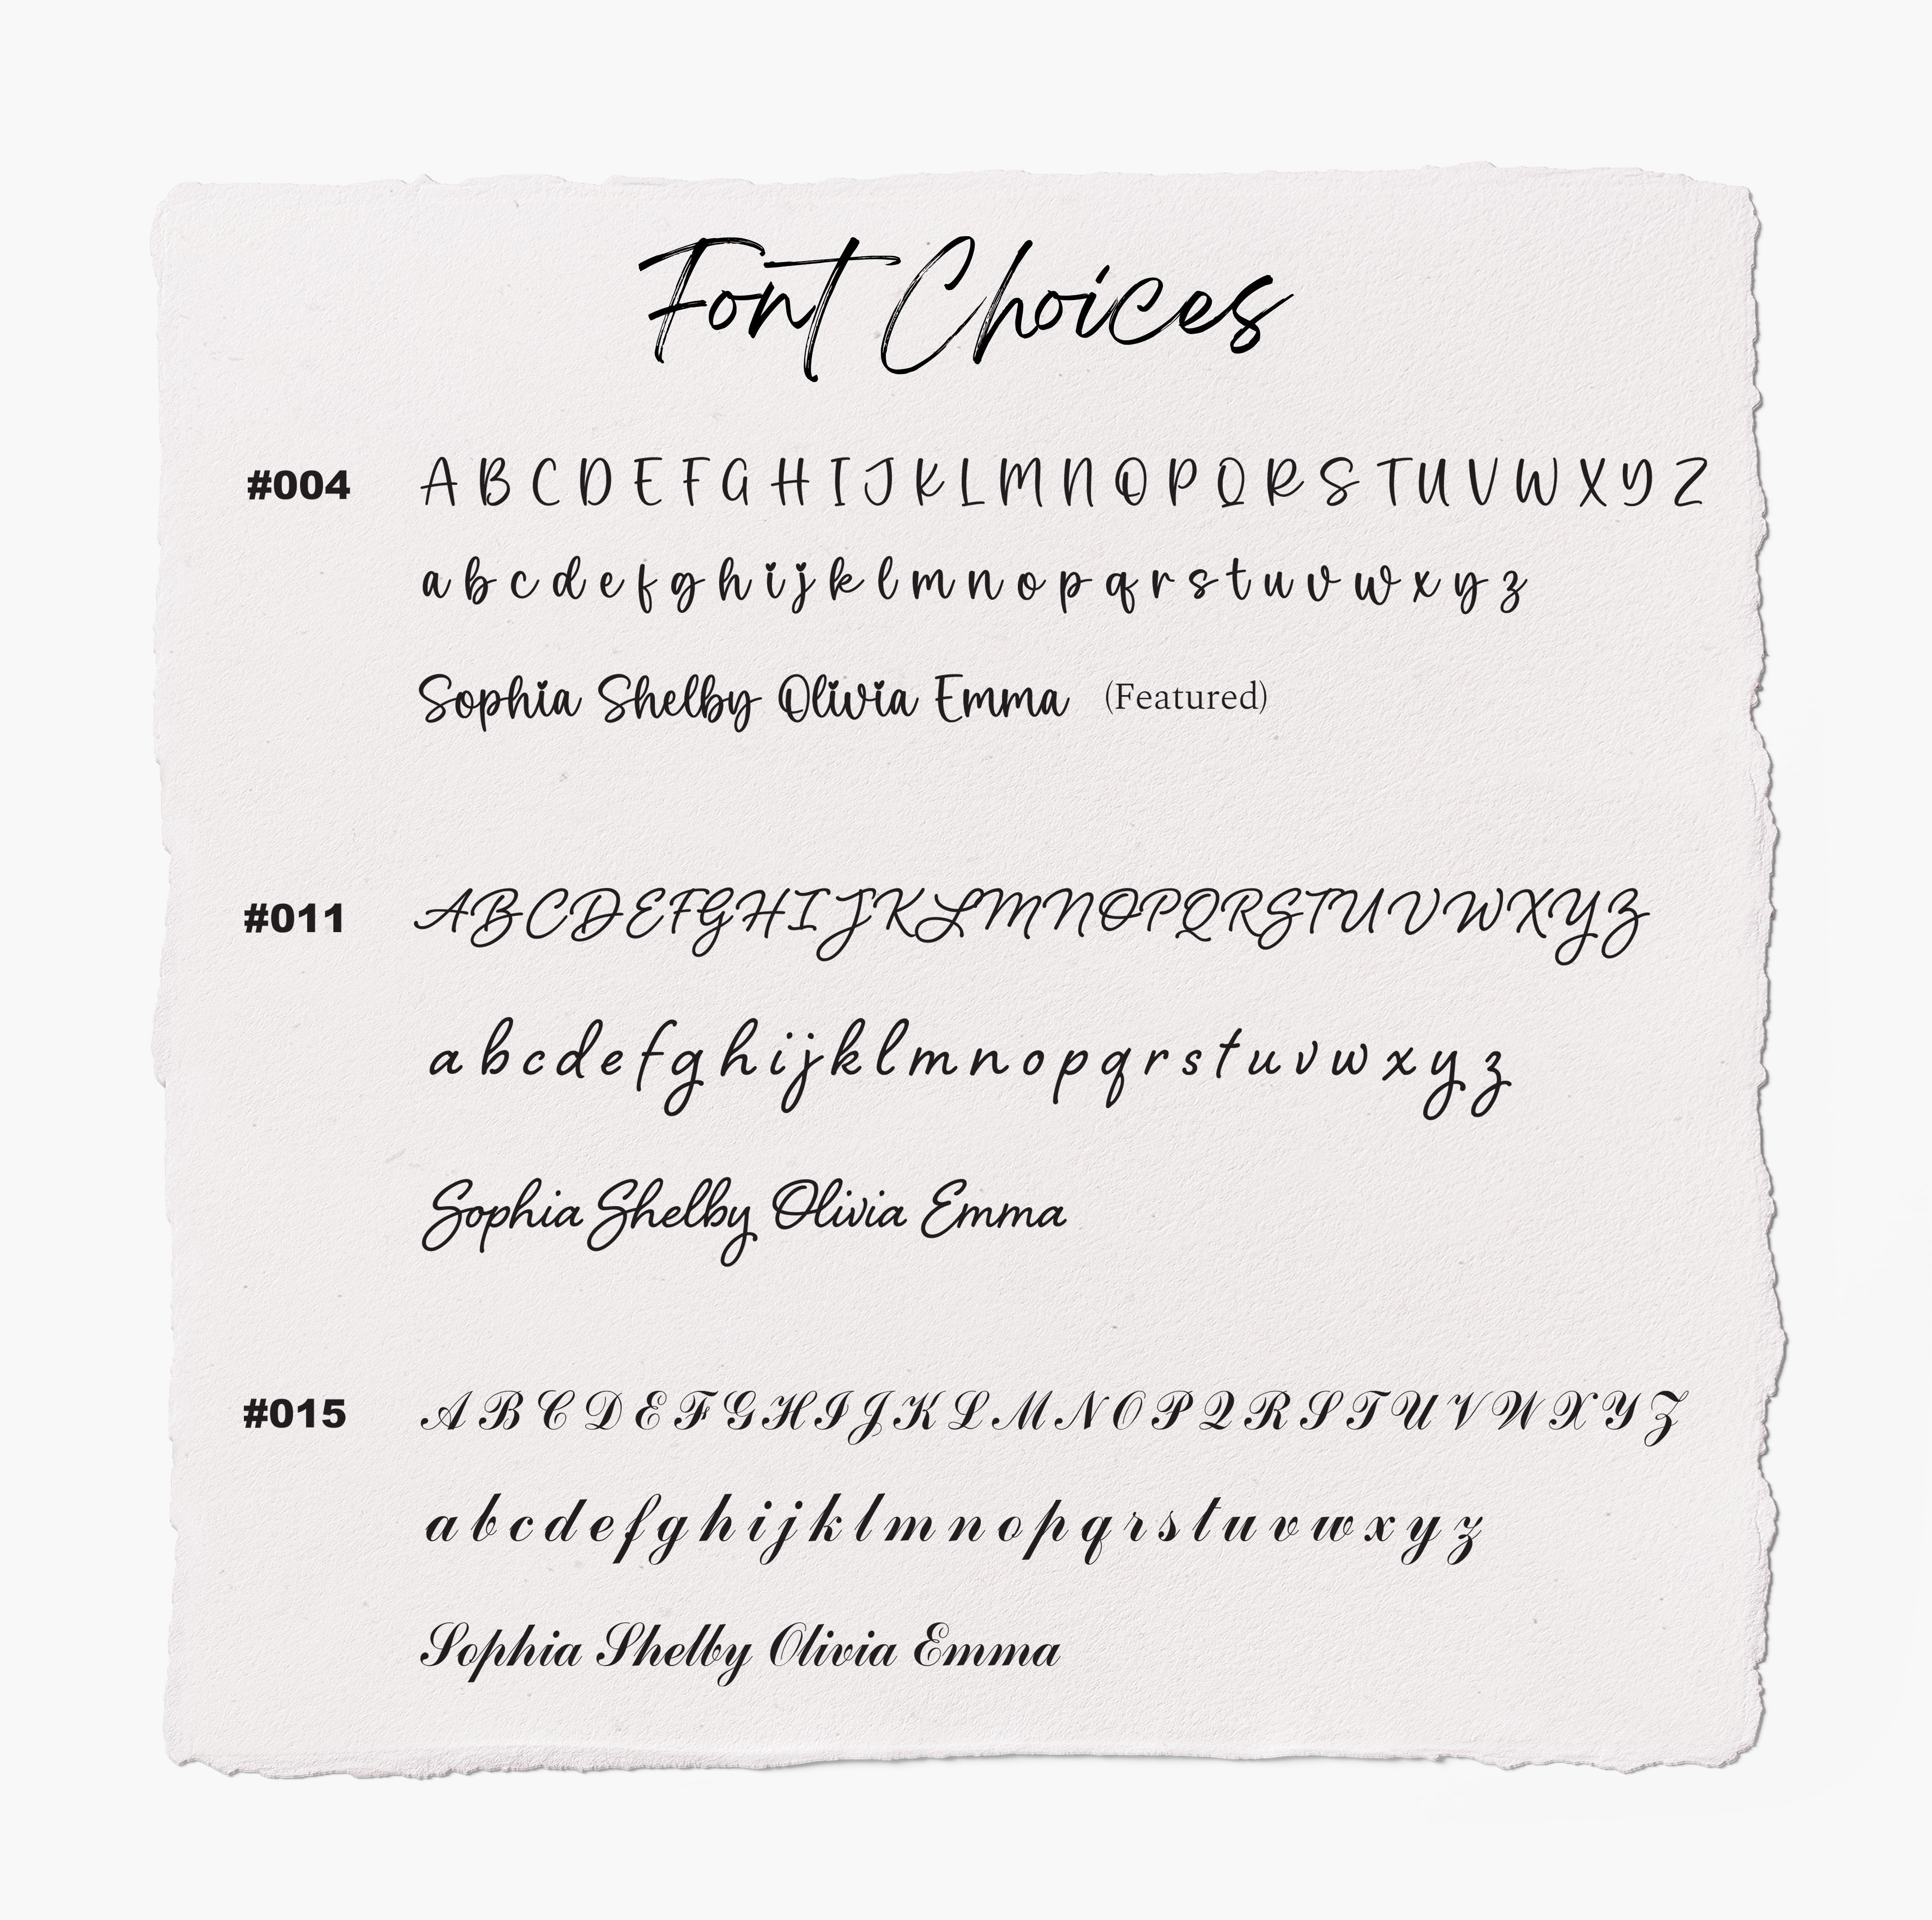 Font Choices
#004 A B C D E F G H I J K L M N O P Q R S T U V W X Y Z
a b c d e f g h i j k l m n o p q r s t u v w x y z
Sophia Shelby Olivia Emma (Featured)
#011 A B C D E F G H I J K L M N O P Q R S T U V W X Y Z
a b c d e f g h i j k l m n o p q r s t u v w x y z
Sophia Shelby Olivia Emma
#015 A B C D E F G H I J K L M N O P Q R S T U V W X Y Z
a b c d e f g h i j k l m n o p q r s t u v w x y z
Sophia Shelby Olivia Emma